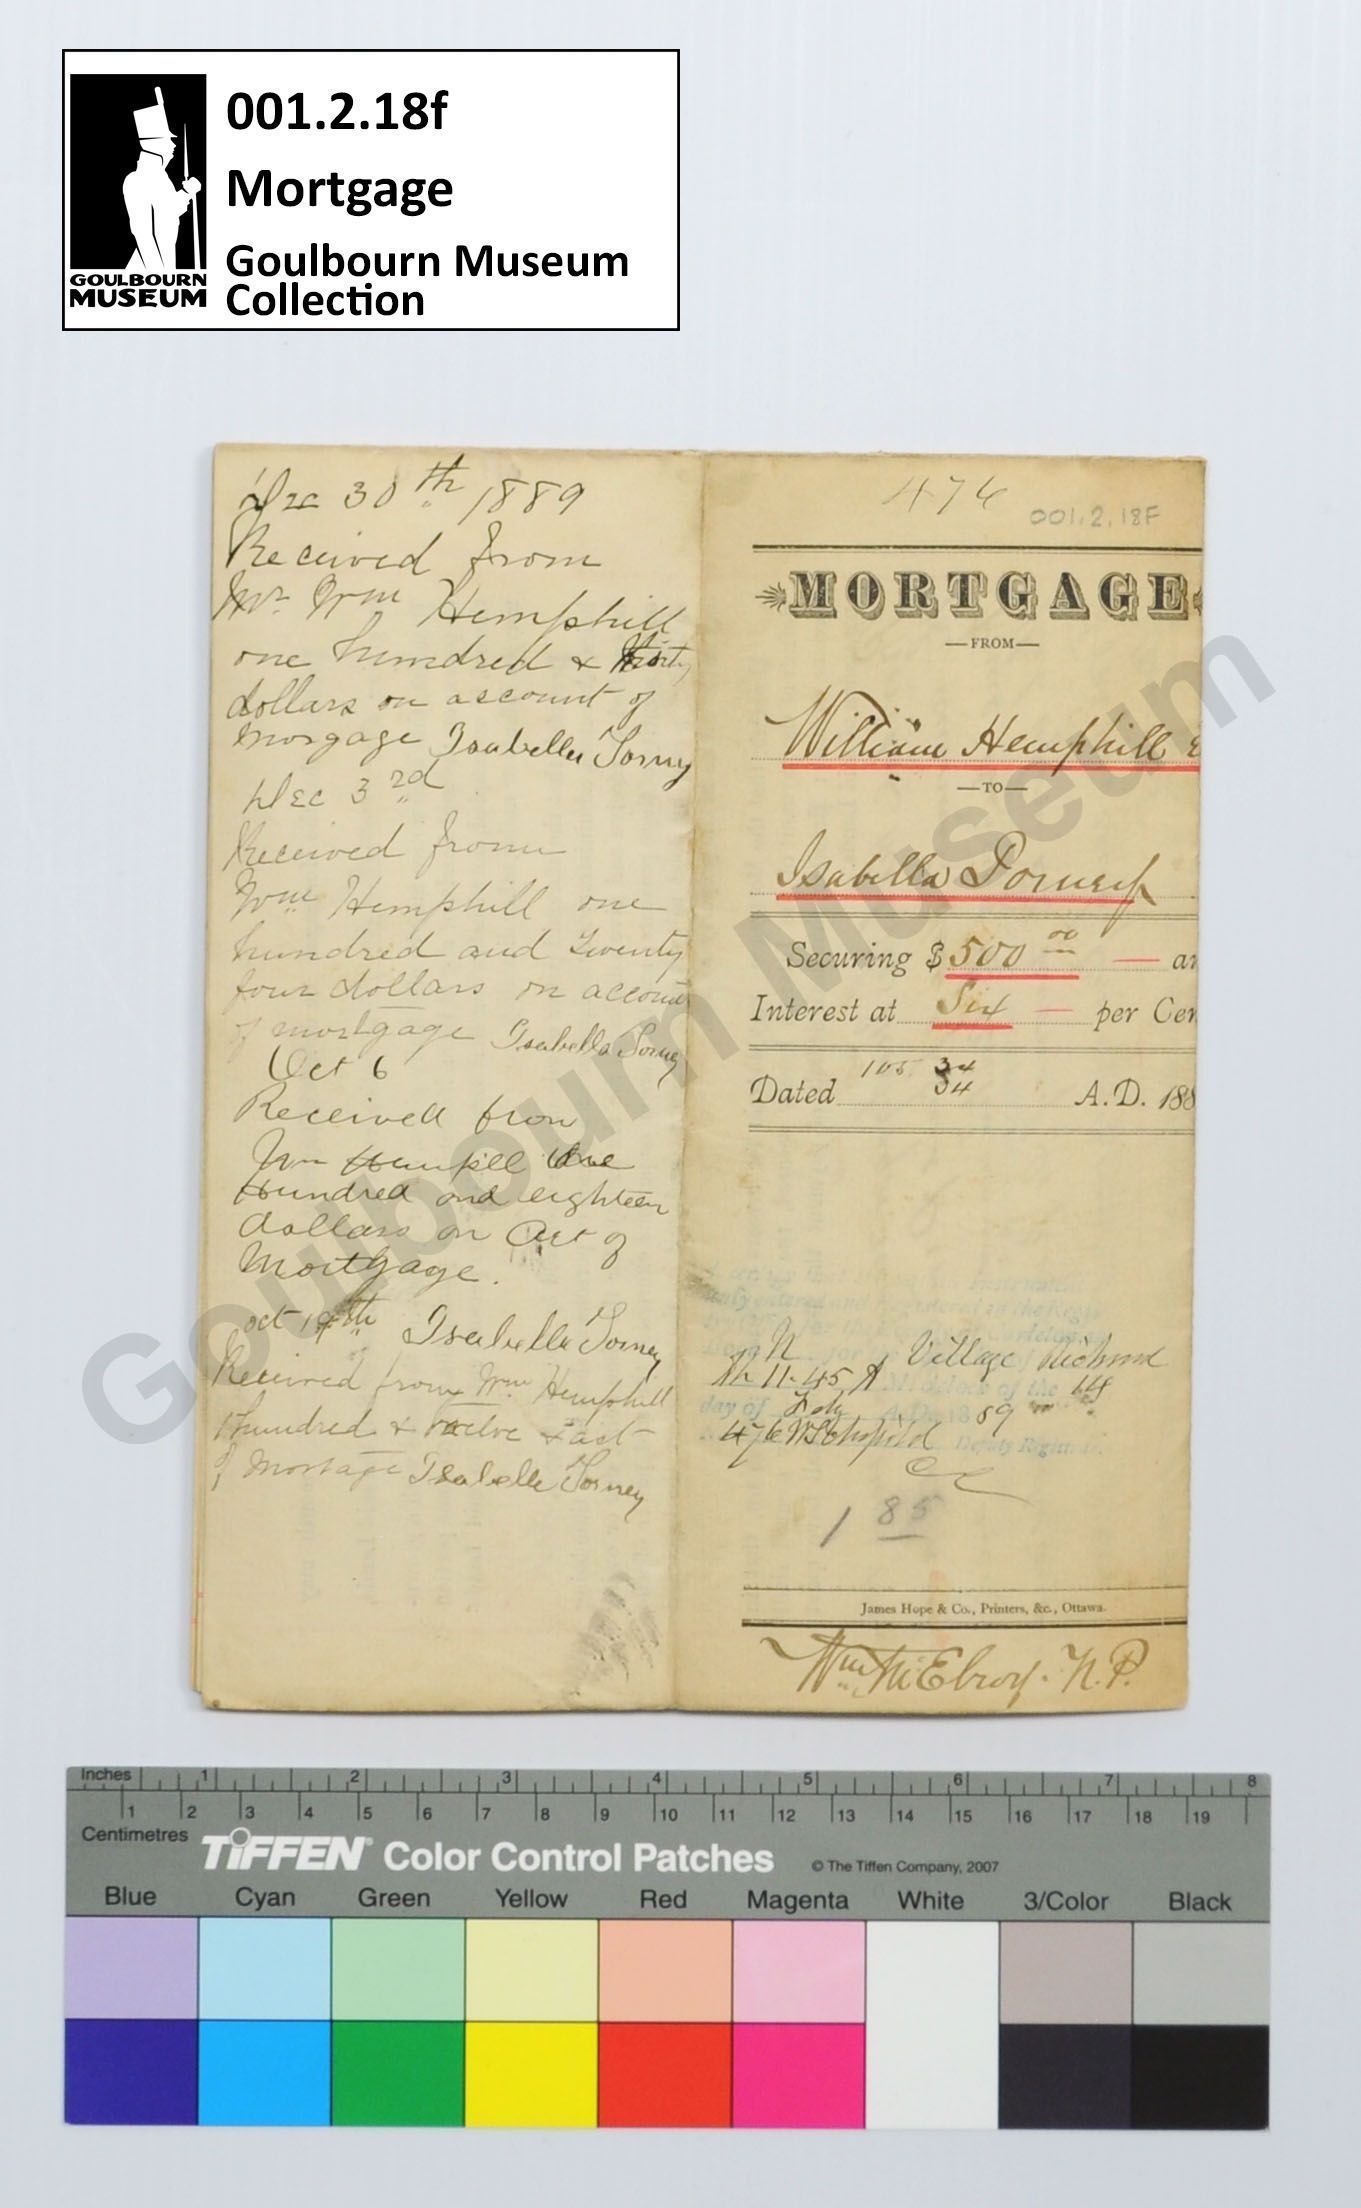 001.2.18f
Mortgage
Goulbourn Museum
Collection
GOULBOURN
MUSEUM
Dec 30th 1889
Received from
Mr Wm Hemphill
one hundred & thirty
dollars on account of
morgage Isabella Torney
Dec 3rd
Received from
Wm Hemphill one
hundred and twenty
four dollars on account
of mortgage Isabella Torney
Oct 6
Received from
Wm Hemphill One
Hundred and eighteen
dollars on Act of
Mortgage.
oct 19th Isabella Torney
Received from Wm Hemphill
Hundred & twelve
of mortage Isabella Torney
476
001.2.18F
MORTGAGE
—FROM—
William Hemphill
—TO—
Isabella Torney
Securing $ 500 00 — an
Interest at Six — per Cen
105 34
Dated 34 A.D. 188
N Village Richmond
11.45 A M. o'clock of the 14
day of Feby A.D. 1889
476 Deputy Registrar.
1 85
James Hope & Co., Printers, &c., Ottawa.
Wm McElroy. N.P.
Goulbourn Museum
Inches 1 2 3 4 5 6 7 8
1 2 3 4 5 6 7 8 9 10 11 12 13 14 15 16 17 18 19
Centimetres
TIFFEN Color Control Patches © The Tiffen Company, 2007
Blue Cyan Green Yellow Red Magenta White 3/Color Black